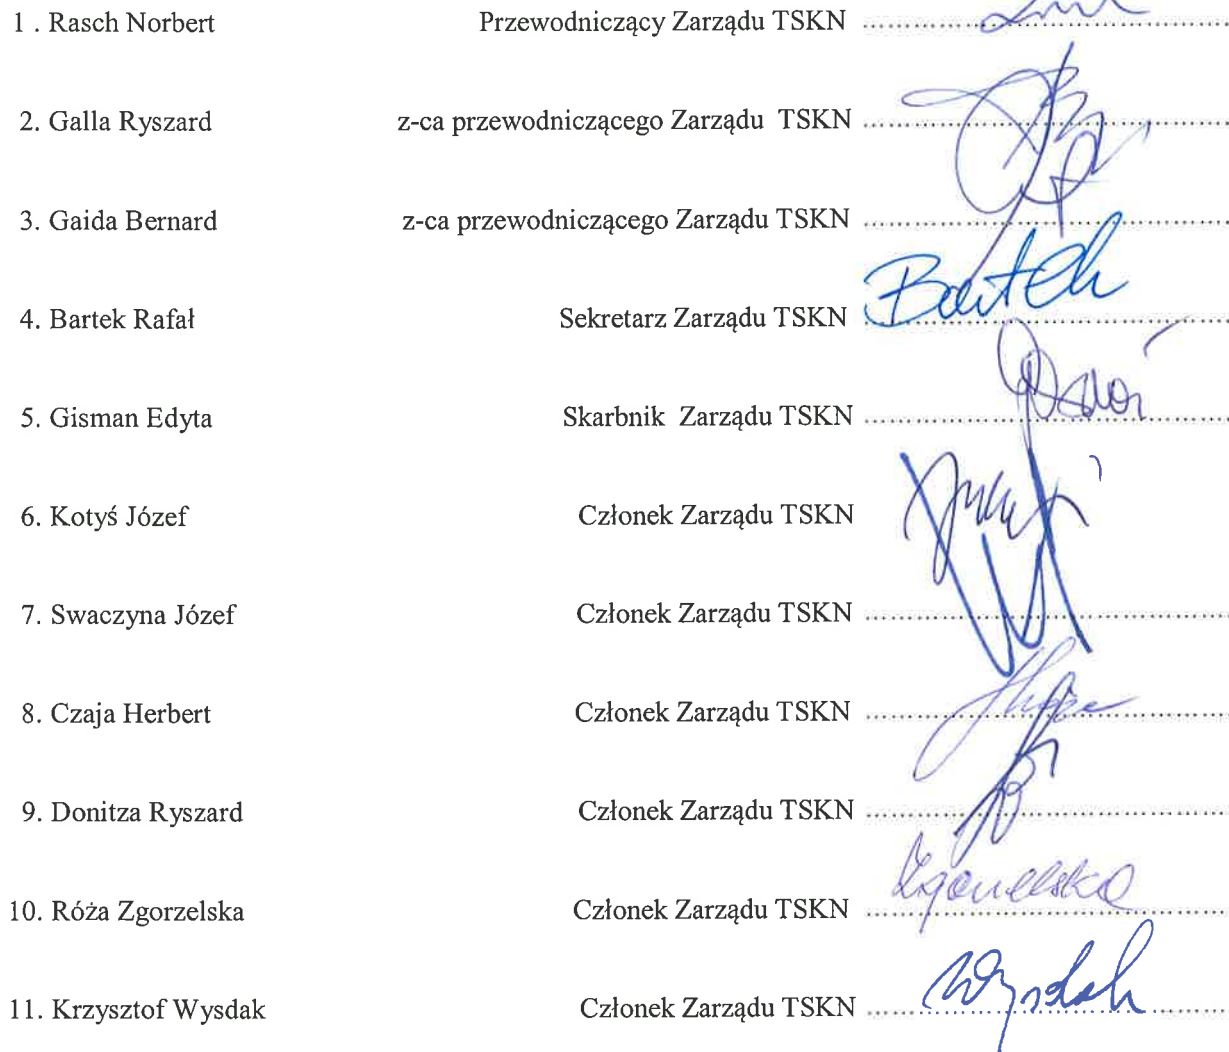 1 . Rasch Norbert Przewodniczący Zarządu TSKN ................................
2. Galla Ryszard z-ca przewodniczącego Zarządu TSKN ................................
3. Gaida Bernard z-ca przewodniczącego Zarządu TSKN ................................
4. Bartek Rafał Sekretarz Zarządu TSKN Bartek ................................
5. Gisman Edyta Skarbnik Zarządu TSKN ................................
6. Kotyś Józef Członek Zarządu TSKN
7. Swaczyna Józef Członek Zarządu TSKN ................................
8. Czaja Herbert Członek Zarządu TSKN ................................
9. Donitza Ryszard Członek Zarządu TSKN ................................
10. Róża Zgorzelska Członek Zarządu TSKN Zgorzelska ................................
11. Krzysztof Wysdak Członek Zarządu TSKN Wysdak ................................